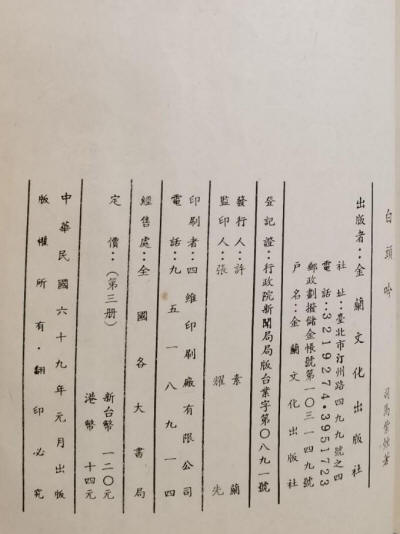 白頭吟
司馬紫烟著
出版者：金蘭文化出版社
社址：臺北市汀州路四九九號之四
電話：3219274•3951723
郵政劃撥儲金帳號第一〇三一四九號
戶名：金蘭文化出版社
登記證：行政院新聞局局版台業字第〇八九一號
發行人：許素蘭
監印人：張燿先
印刷者：四維印刷廠有限公司
電話：九五一八九一四
經售處：全國各大書局
定價：（第三册）新台幣一二〇元
港幣十四元
中華民國六十九年元月出版
版權所有•翻印必究